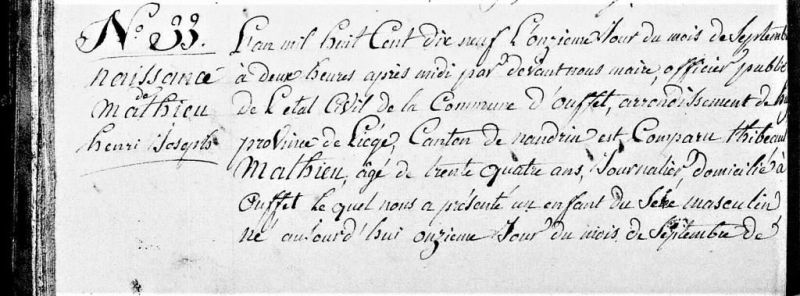 N.o 33.
naissance
de
Mathieu
henri Joseph
L'an mil huit Cent dix neuf L'onzieme Jour du mois de Septembr
à deux heures après midi par devant nous maire, officier public
de L'etat Civil de la Commune d'ouffet, arrondissement de
province de Liège, Canton de nandrin est Comparu thibeau
Mathieu, âgé de trente quatre ans, Journalier, Domicilié à
ouffet le quel nous a présenté un enfant du Sexe masculin
né aujourd'hui onzieme Jour du mois de Septembre de